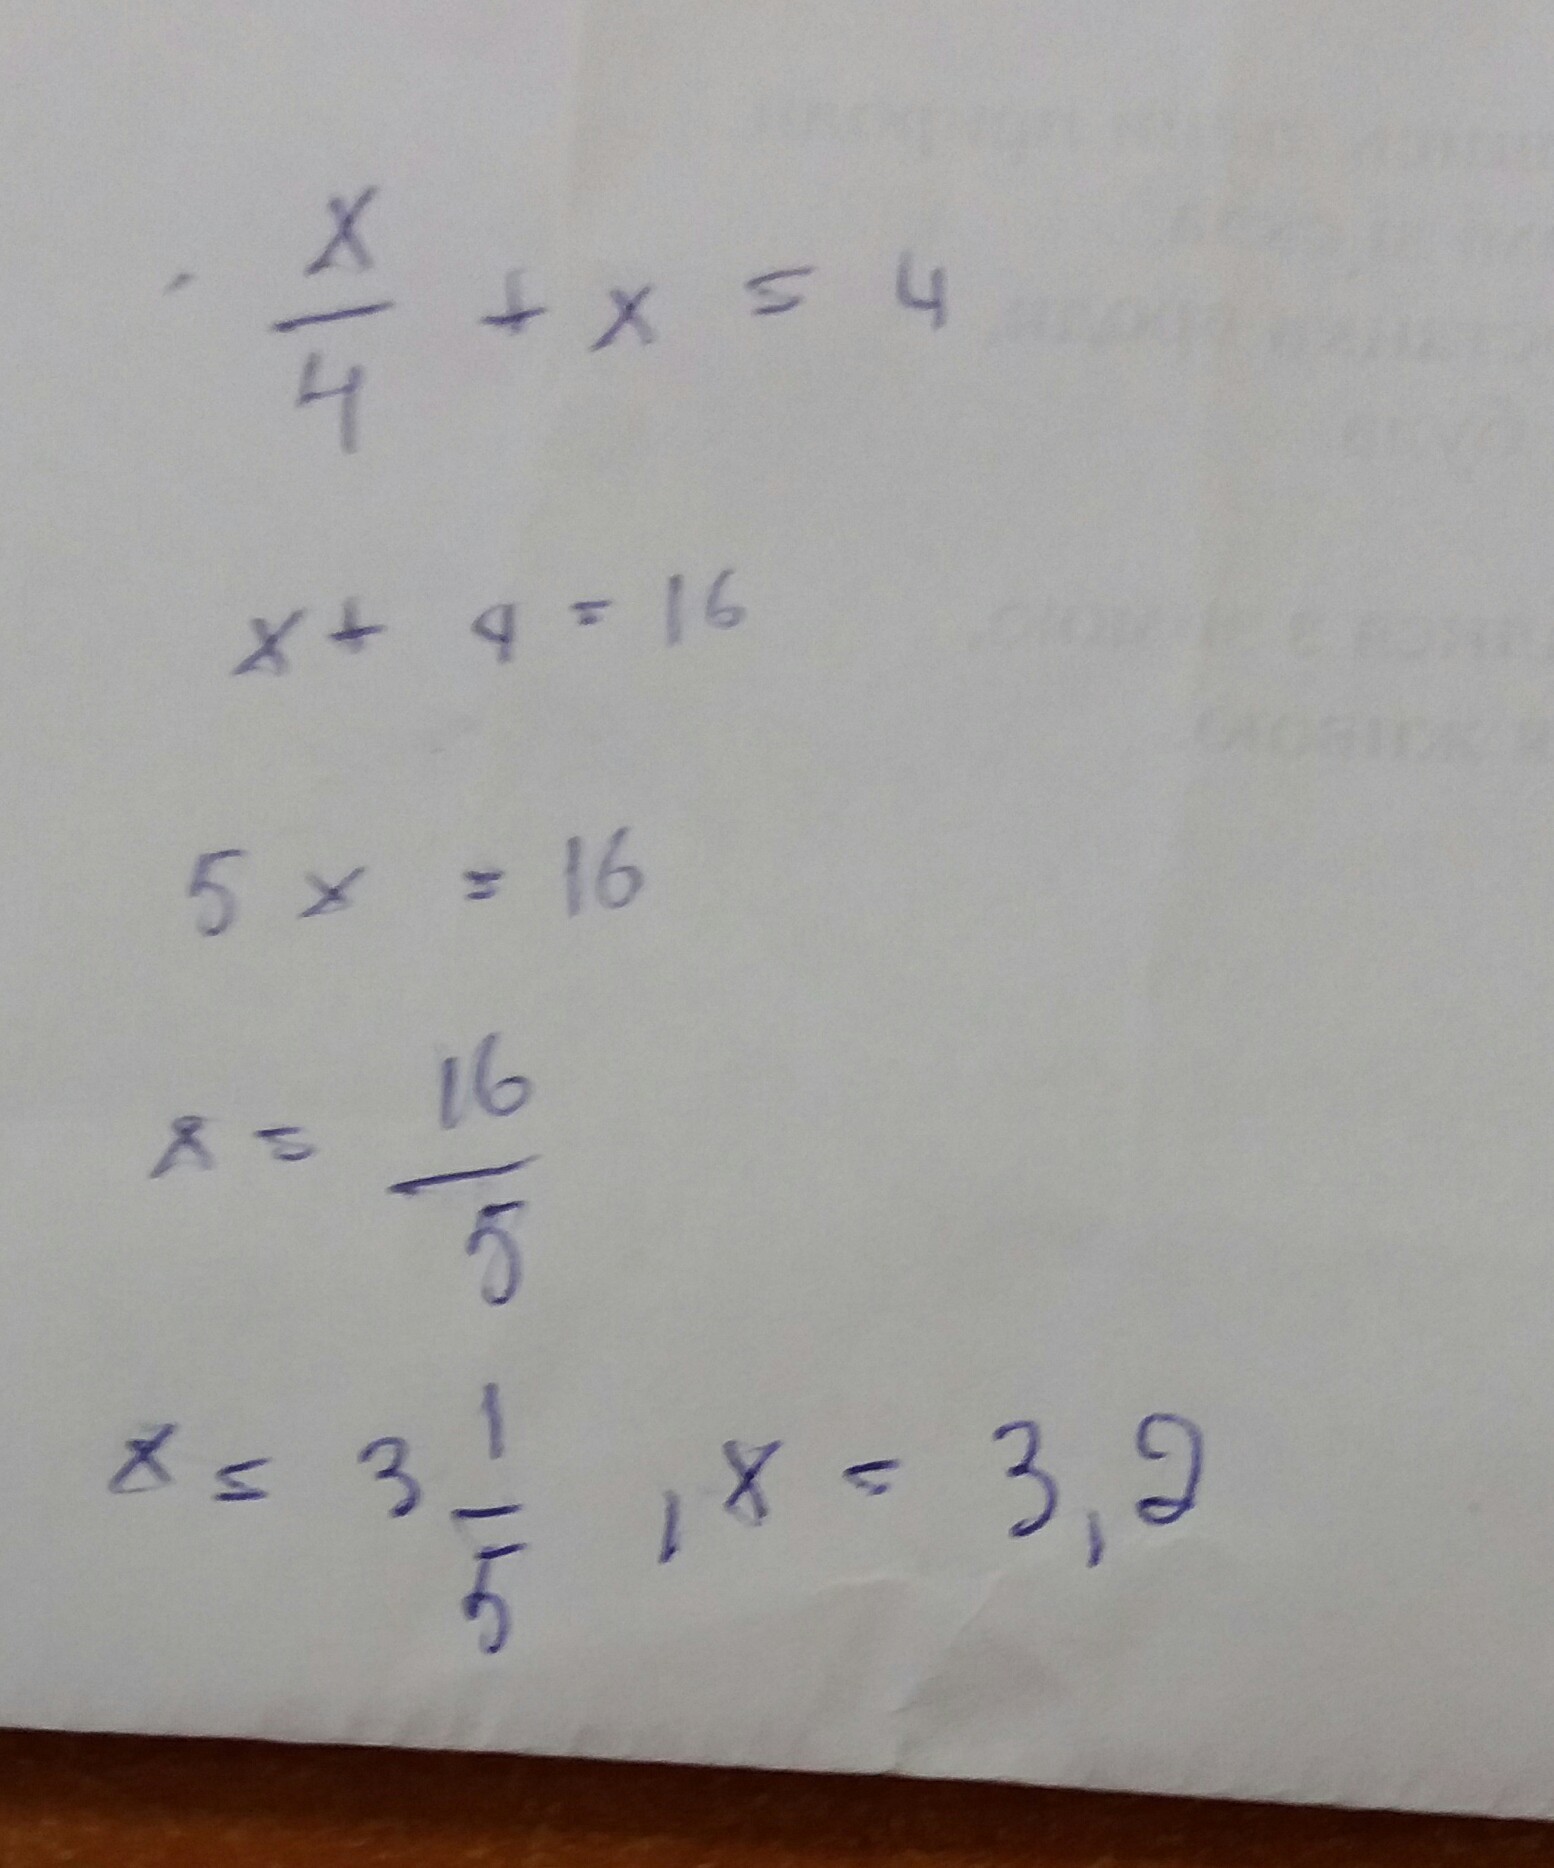 x/4 + x = 4
x + 4 = 16
5x = 16
x = 16/5
x = 3 1/5, x = 3,2